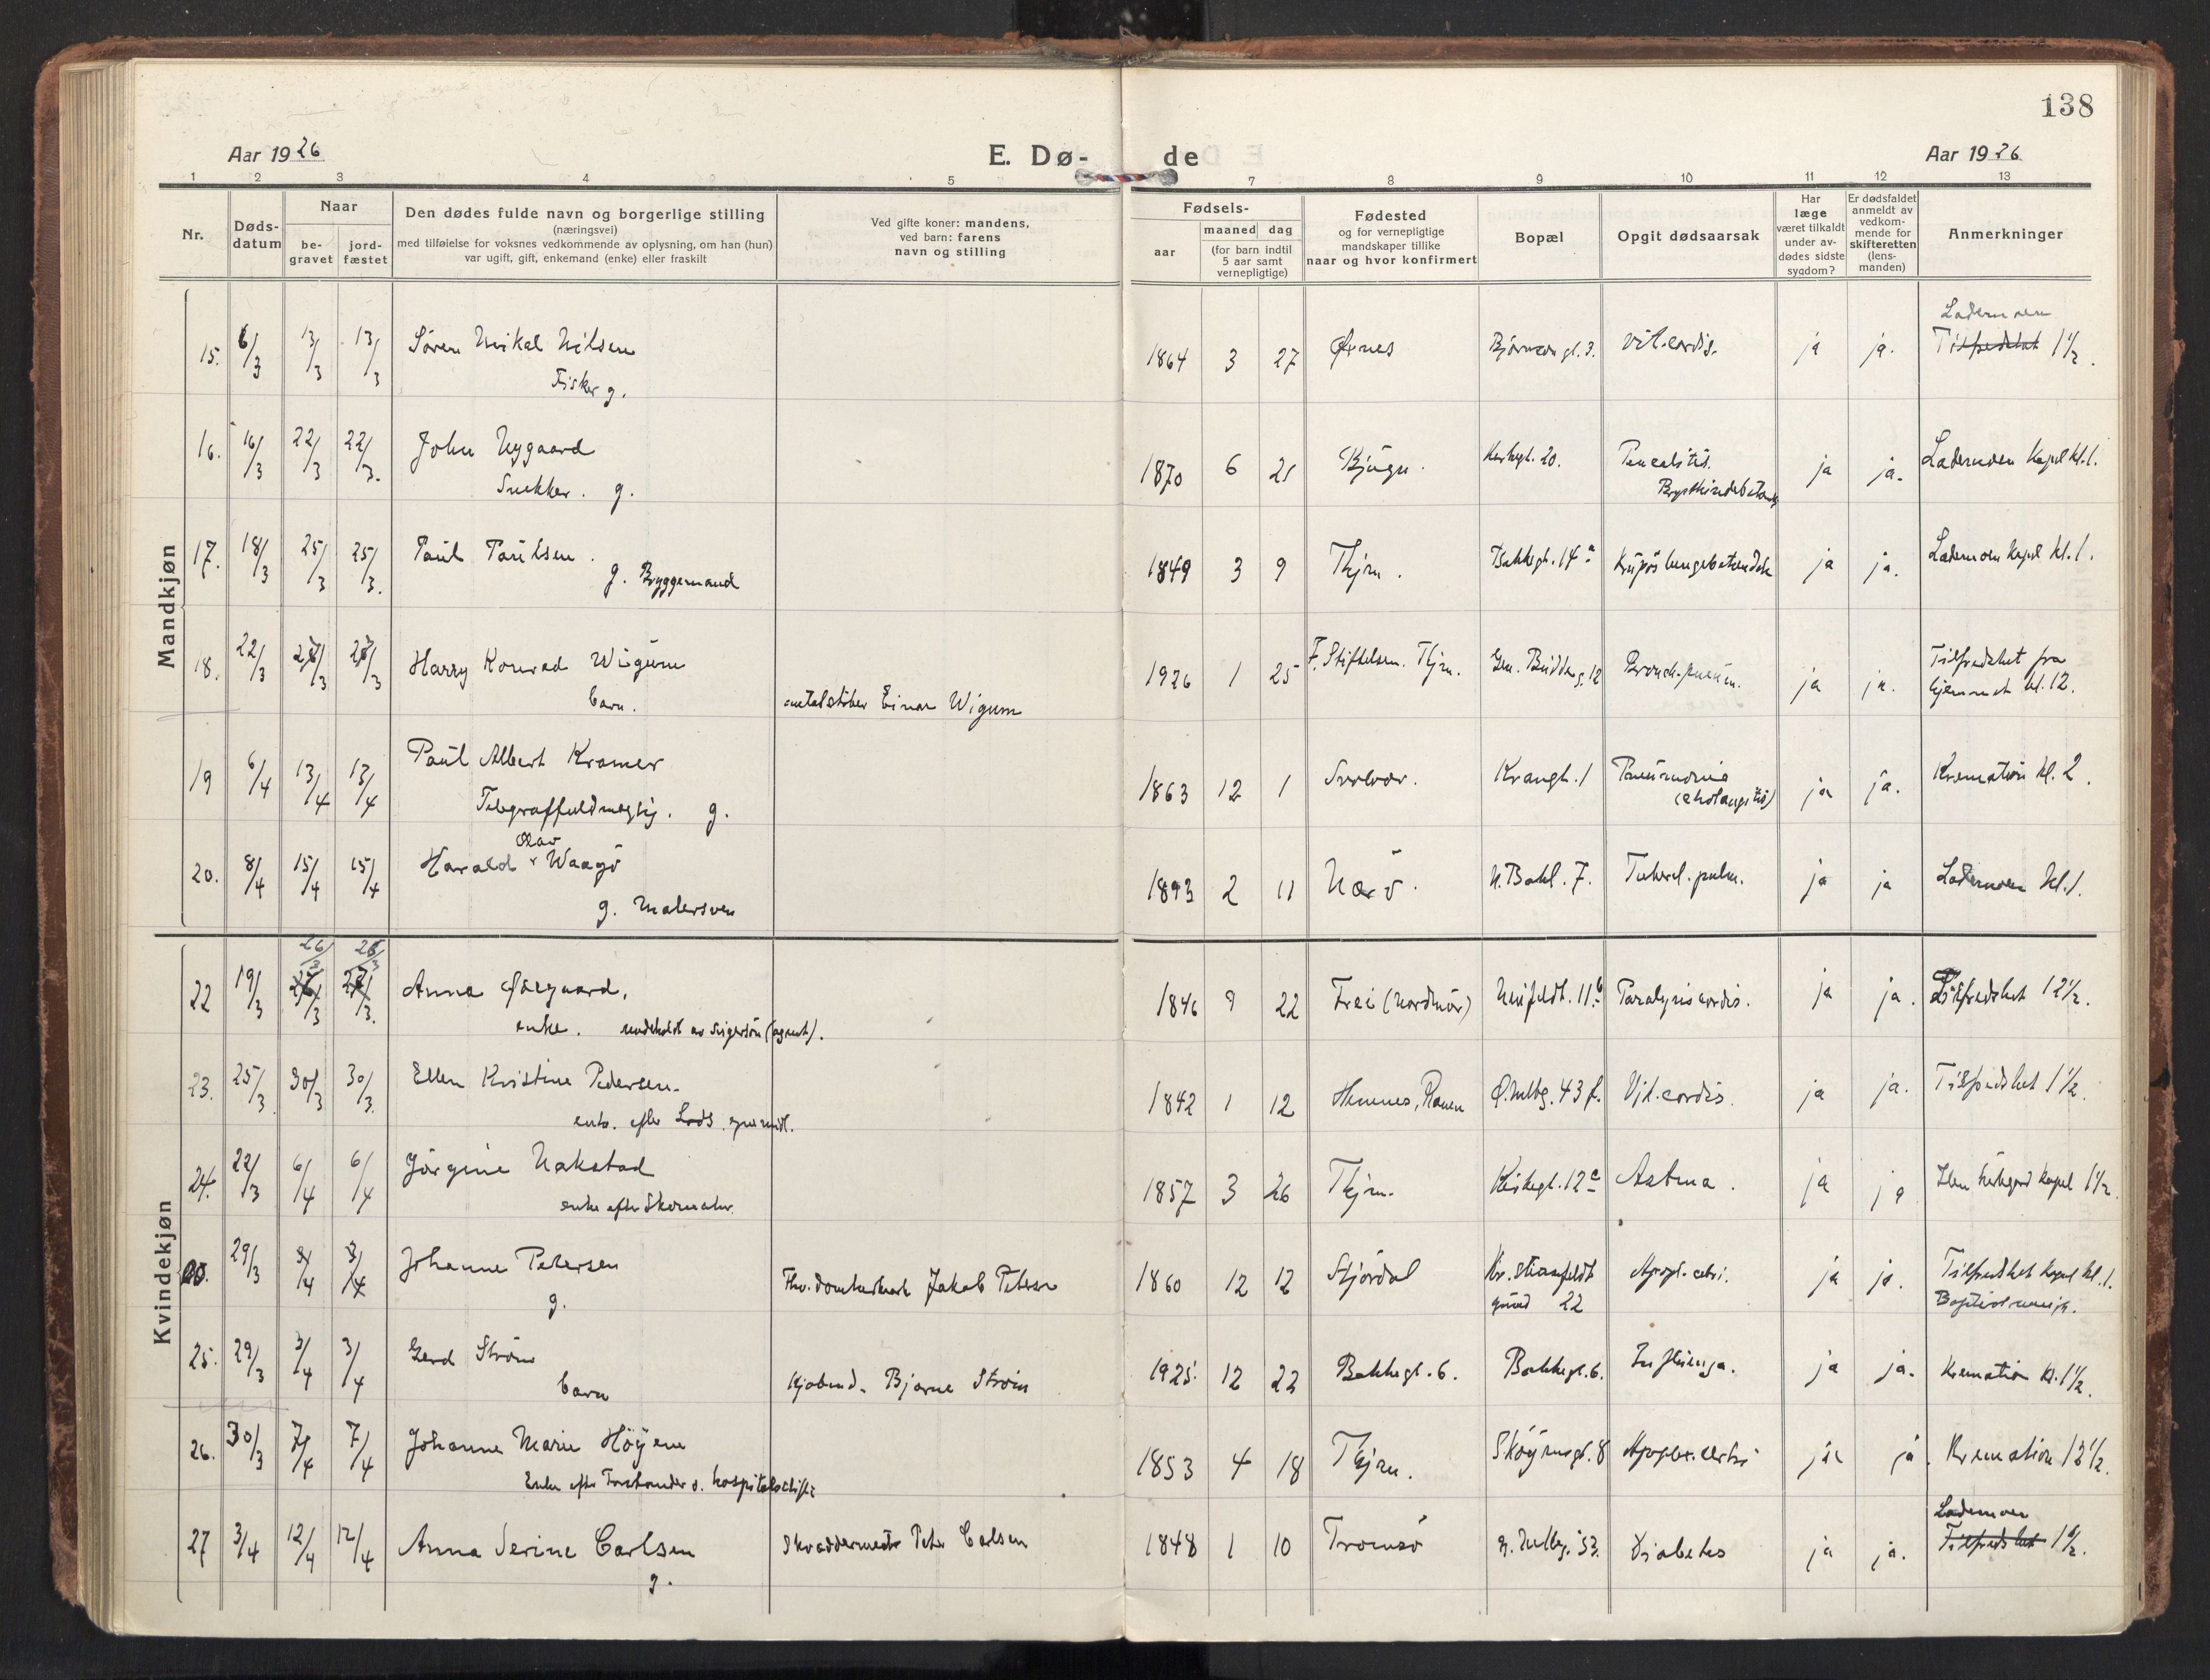 138
Aar 1926
E. Dø-
de
Aar 1926
1 2 3 4 5 7 8 9 10 11 12 13
Nr.
Døds-
datum
Naar
be-
gravet
jord-
fæstet
Den dødes fulde navn og borgerlige stilling
(næringsvei)
med tilføielse for voksnes vedkommende av oplysning, om han (hun)
var ugift, gift, enkemand (enke) eller fraskilt
Ved gifte koner: mandens,
ved barn: farens
navn og stilling
Fødsels-
aar
maaned dag
(for barn indtil
5 aar samt
vernepligtige)
Fødested
og for vernepligtige
mandskaper tillike
naar og hvor konfirmert
Bopæl
Opgit dødsaarsak
Har
læge
været tilkaldt
under av-
dødes sidste
sygdom?
Er dødsfaldet
anmeldt av
vedkom-
mende for
skifteretten
(lens-
manden)
Anmerkninger
Mandkjøn
Lademoen
15. 6/3 13/3 13/3 Sören Mikal Nilsen 1864 3 27 Øxnes Bjørnsons gt. 3. Vit. cordis. ja ja. Tilfredshet 1 1/2.
Fisker g.
16. 16/3 22/3 22/3. John Nygaard 1870 6 21 Bjugn. 20. ja ja. Lademoen Kapel kl. 1.
Snekker. g.
17. 18/3 25/3 25/3. Paul Paulsen. 1849 3 9 Thjm. Bakkegt. 14a Krupøs lungebetændelse ja ja. Lademoen Kapel kl. 1.
g. Bryggemand
18. 22/3 /3 /3 Harry Konrad Wigum 1926 1 25 F. Stiftelsen. Thjm. Gen. Buddes g. 12 Bronch. pneum. ja ja. Tilfredshet fra
barn. Einar Wigum hjemmet kl. 12.
19 6/4 13/4 13/4 Paul Albert Kramer 1863 12 1 Svolvær. Krangt. 1 Pneumonia ja ja. Kremation kl. 2.
Telegraffuldmegtig. g. (cholangitis)
Olav
20. 8/4 15/4 15/4 Harald Waagö 1893 2 11 Nærö. N. Bakl. 7. Tuberkl. pulm. ja ja Lademoen kl. 1.
g. Malersven
Kvindekjøn
26/3 26/3
22 19/3 /3 /3. Anna Ødegaard, 1846 9 22 Frei (Nordmör) 11b Paralysis cordis. ja ja. Tilfredshet 12 1/2.
enke. (agent).
23. 25/3 30/3 30/3. Ellen Kristine Pedersen. 1842 1 12 Hemnes, Ranen Ø. Mlbg. 43 f. Vit. cordis. ja ja. Tilfredshet 1 1/2.
enke. efter Lods.
24. 22/3 6/4 6/4 Jörgine Nakstad 1857 3 26 Thjm. Kirkegt. 12c Astma. ja ja Ilen Kirkegård kapel 1 1/2.
enke efter Skomaker.
29/3 /4 /4 Johanne Petersen Jakob Petersen 1860 12 12 Stjördal Kr. Stianfeldt Apopl. cebri. ja ja. Tilfredshet kapel kl. 1.
g. grund 22
25. 29/3 3/4 3/4 Gerd Ström Kjøbmd. Bjarne Ström 1925. 12 22 Bakkegt. 6. Bakkegt. 6. Influenza. ja ja. Kremation kl. 1 1/2.
barn
26. 30/3 7/4 7/4 Johanne Marie Höyem 1853 4 18 Thjm. 8 Apoplex. cerebri ja ja. Kremation 12 1/2.
Enke efter
Lademoen
27 3/4 12/4 12/4 Anna Serine Carlsen Peter Carlsen 1848 1 10 Tromsö 53. Diabetes ja ja. Tilfredshet 1 1/2.
g.